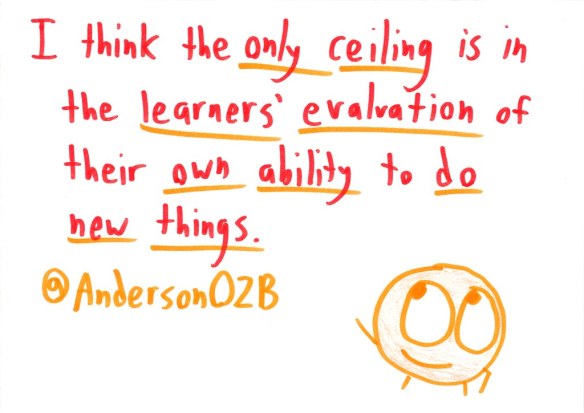 I think the only ceiling is in
the learners' evaluation of
their own ability to do
new things.
@AndersonO2B